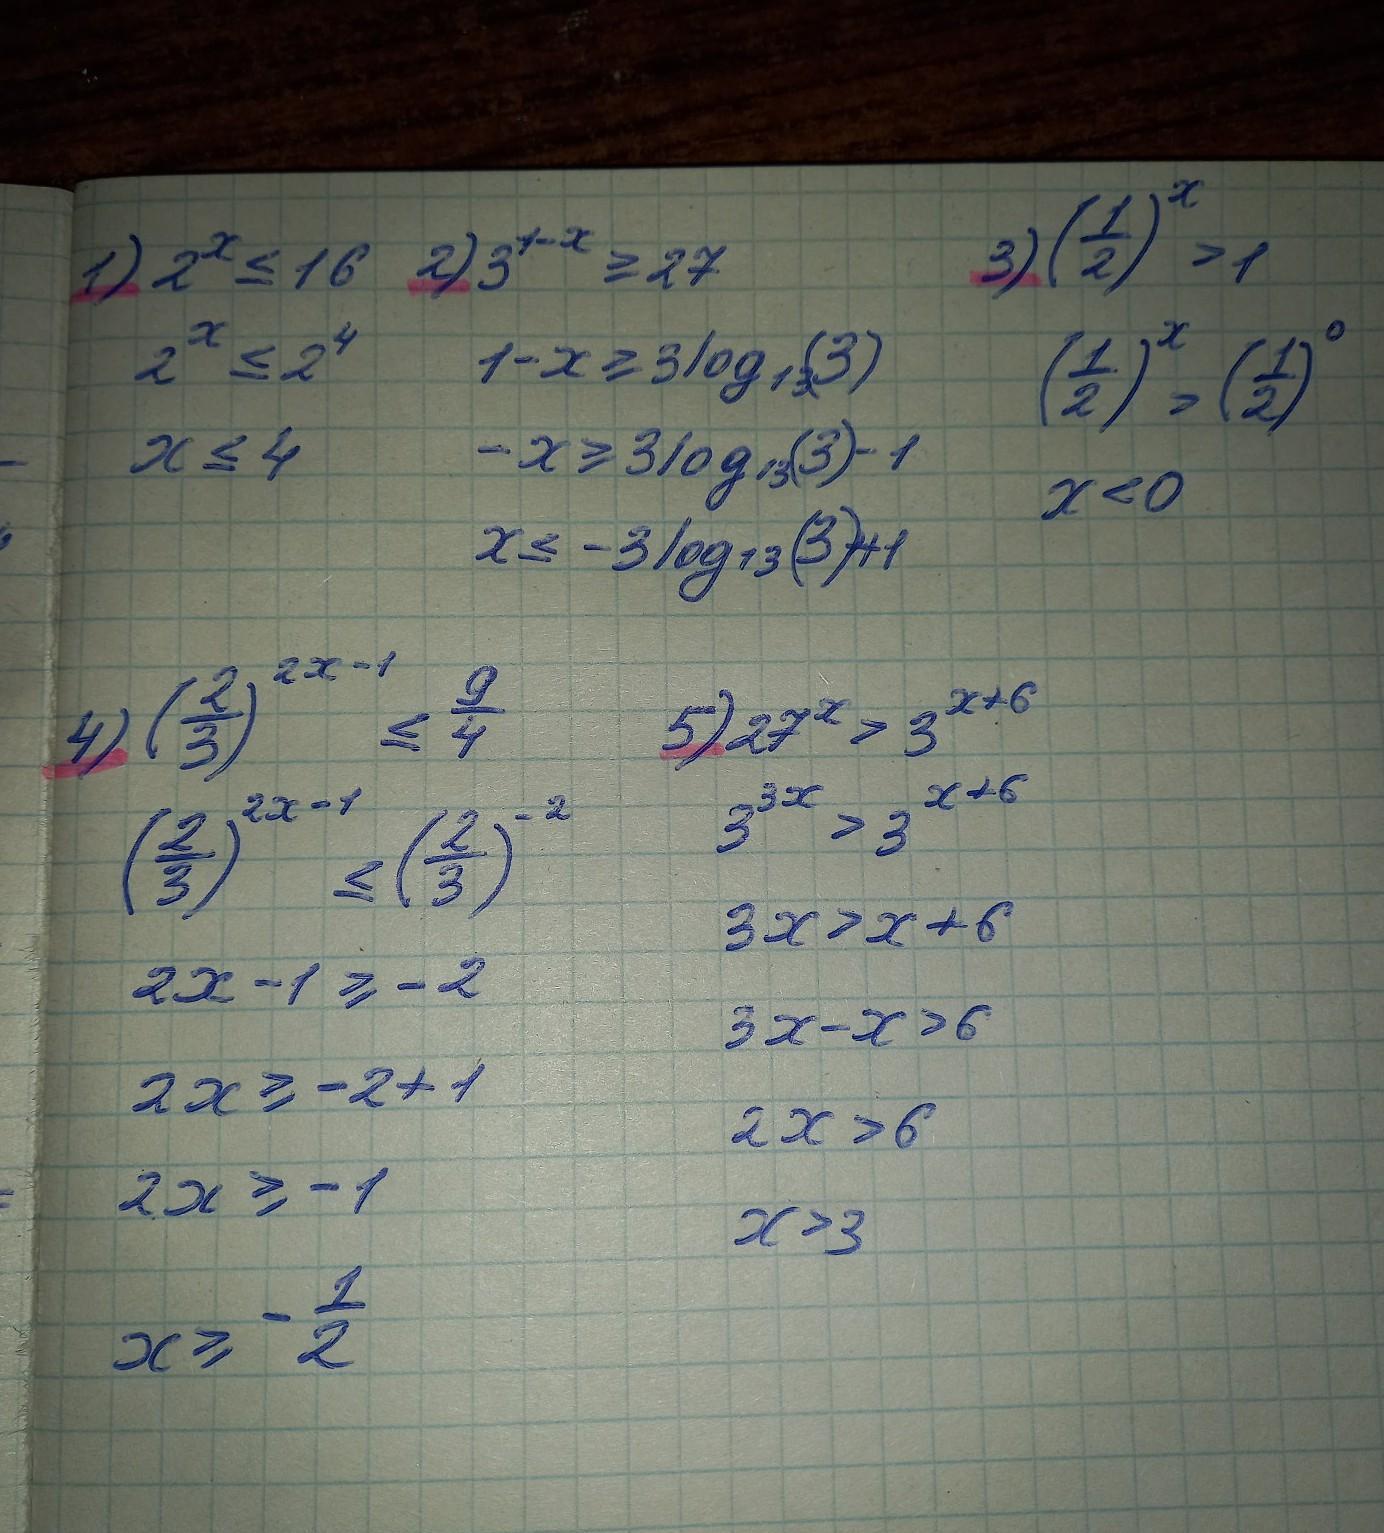 1) 2^x ≤ 16
2^x ≤ 2^4
x ≤ 4
2) 3^{1-x} ≥ 27
1-x ≥ 3log_{13}(3)
-x ≥ 3log_{13}(3)-1
x ≤ -3log_{13}(3)+1
3) (1/2)^x > 1
(1/2)^x > (1/2)^0
x < 0
4) (2/3)^{2x-1} ≤ 9/4
(2/3)^{2x-1} ≤ (2/3)^{-2}
2x-1 ≥ -2
2x ≥ -2+1
2x ≥ -1
x ≥ -1/2
5) 27^x > 3^{x+6}
3^{3x} > 3^{x+6}
3x > x+6
3x-x > 6
2x > 6
x > 3